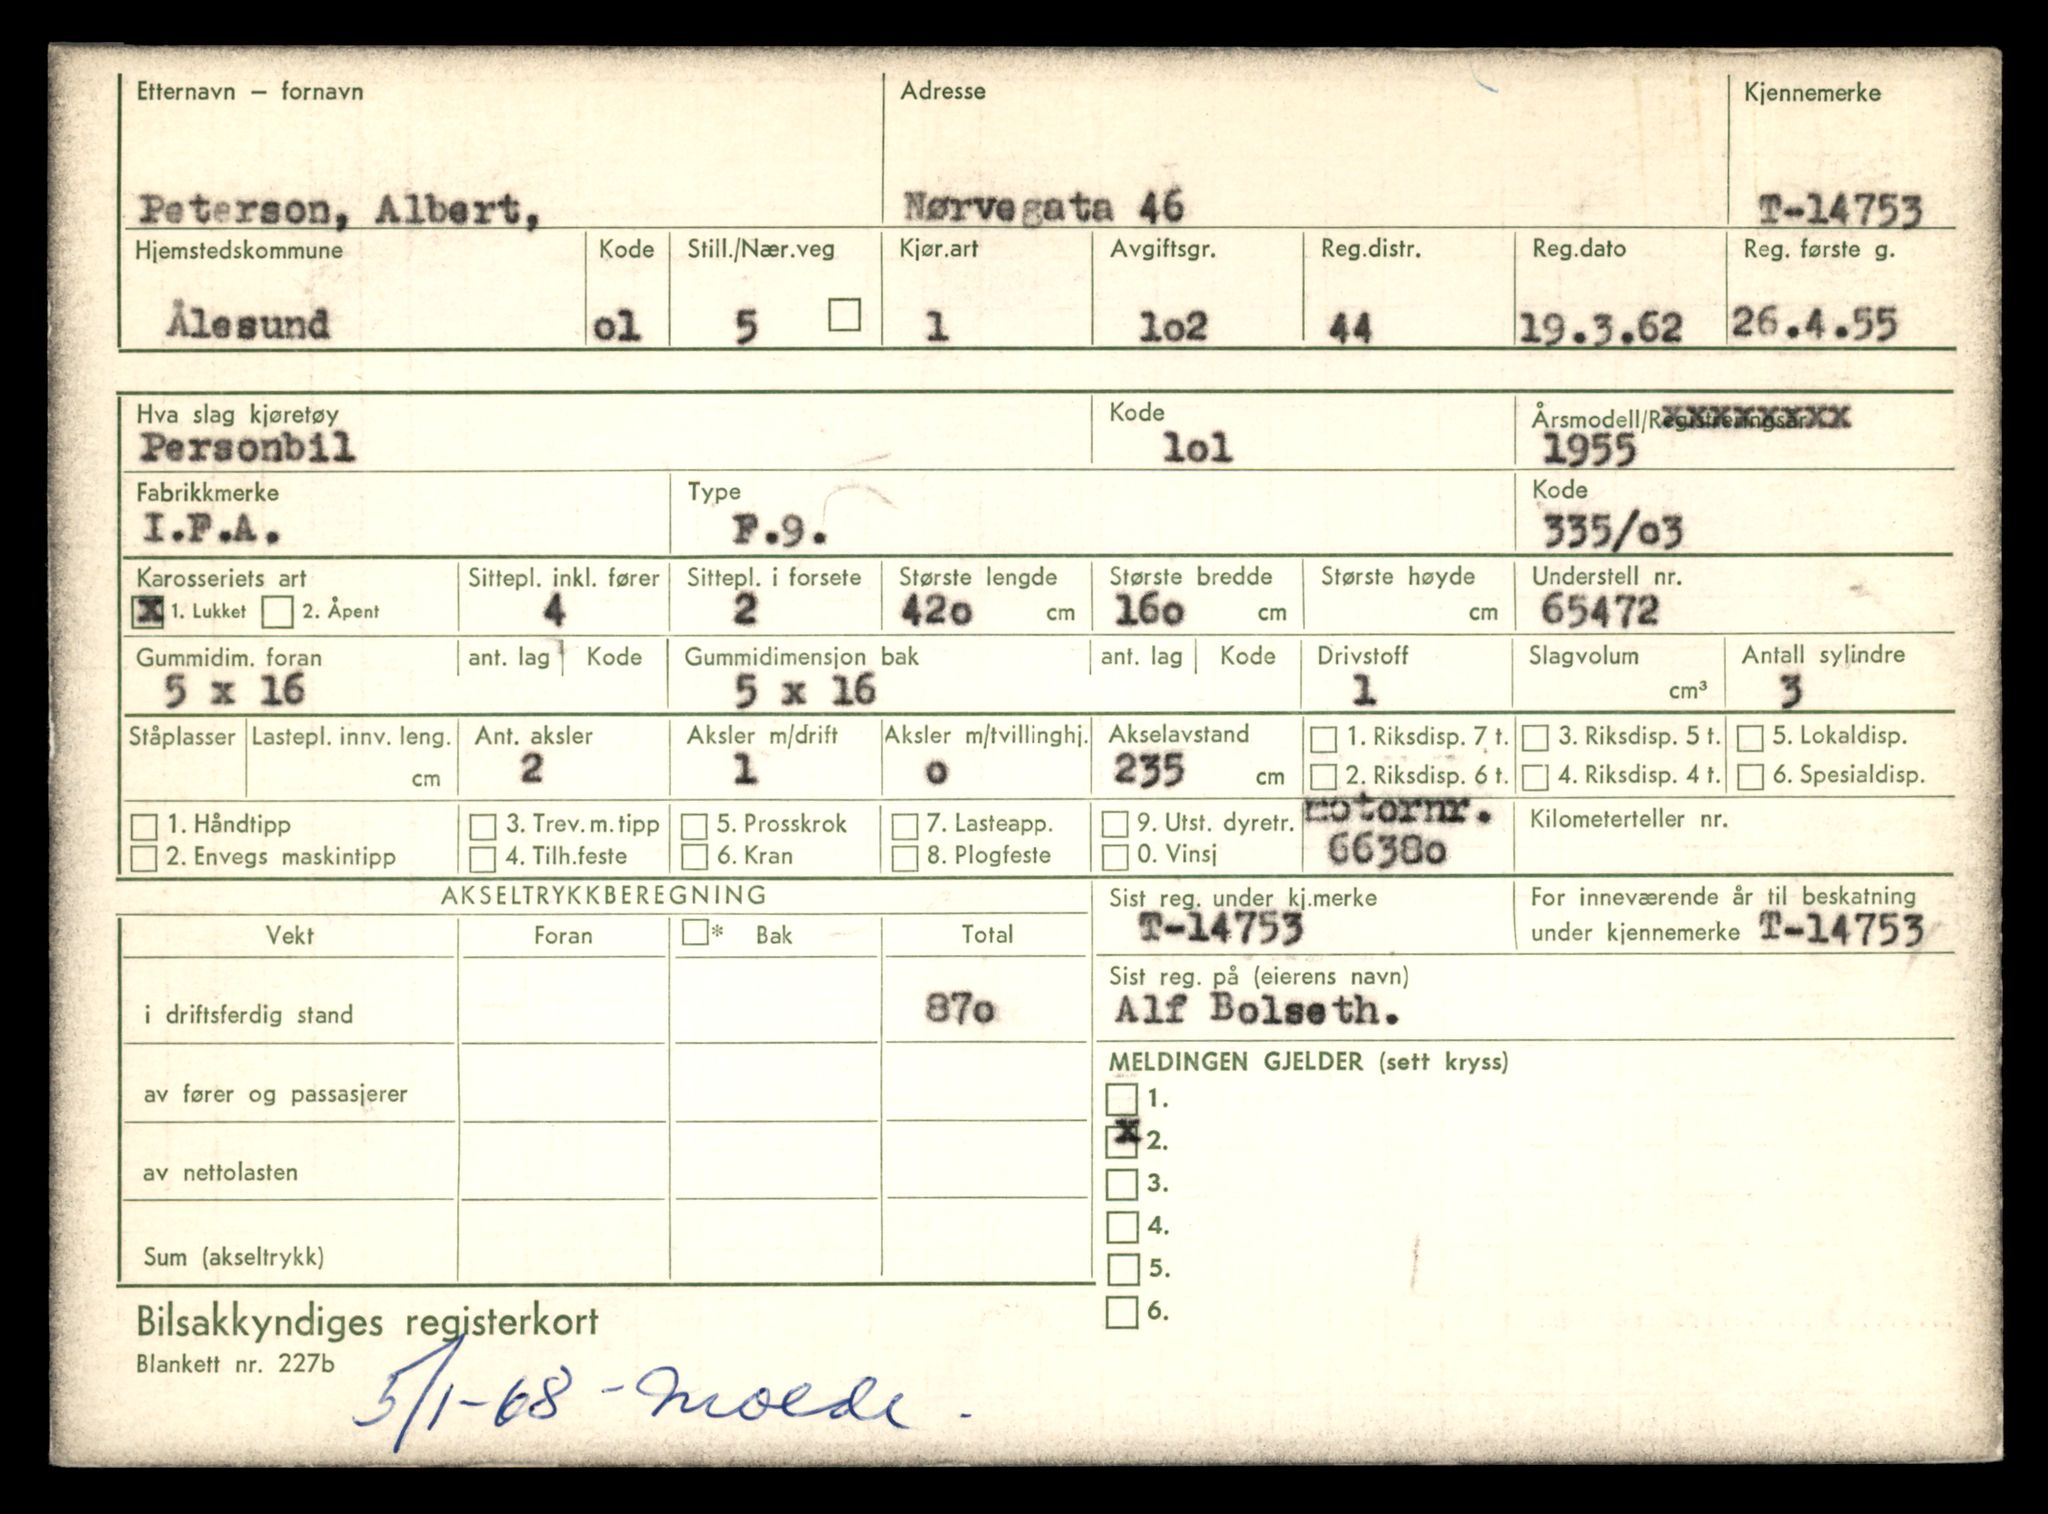 Etternavn – fornavn Adresse Kjennemerke
Peterson, Albert, Nørvegata 46 T-14753
Hjemstedskommune Kode Still./Nær.veg Kjør.art Avgiftsgr. Reg.distr. Reg.dato Reg. første g.
Ålesund o1 5 1 1o2 44 19.3.62 26.4.55
Hva slag kjøretøy Kode Årsmodell/Registreringsår
Personbil 1o1 1955
Fabrikkmerke Type Kode
I.F.A. F.9. 335/o3
Karosseriets art Sittepl. inkl. fører Sittepl. i forsete Største lengde Største bredde Største høyde Understell nr.
x 1. Lukket 2. Åpent 4 2 42o cm 16o cm cm 65472
Gummidim. foran ant. lag Kode Gummidimensjon bak ant. lag Kode Drivstoff Slagvolum Antall sylindre
5 x 16 5 x 16 1 cm³ 3
Ståplasser Lastepl. innv. leng. Ant. aksler Aksler m/drift Aksler m/tvillinghj. Akselavstand 1. Riksdisp. 7 t. 3. Riksdisp. 5 t. 5. Lokaldisp.
cm 2 1 o 235 cm 2. Riksdisp. 6 t. 4. Riksdisp. 4 t. 6. Spesialdisp.
1. Håndtipp 3. Trev. m. tipp 5. Prosskrok 7. Lasteapp. 9. Utst. dyretr. motornr. Kilometerteller nr.
2. Envegs maskintipp 4. Tilh.feste 6. Kran 8. Plogfeste 0. Vinsj 6638o
AKSELTRYKKBEREGNING Sist reg. under kj.merke For inneværende år til beskatning
Vekt Foran * Bak Total T-14753 under kjennemerke T-14753
Sist reg. på (eierens navn)
i driftsferdig stand 87o Alf Bolseth.
MELDINGEN GJELDER (sett kryss)
av fører og passasjerer 1.
x 2.
av nettolasten 3.
4.
Sum (akseltrykk) 5.
6.
Bilsakkyndiges registerkort
Blankett nr. 227b
5/1-68 - Molde.